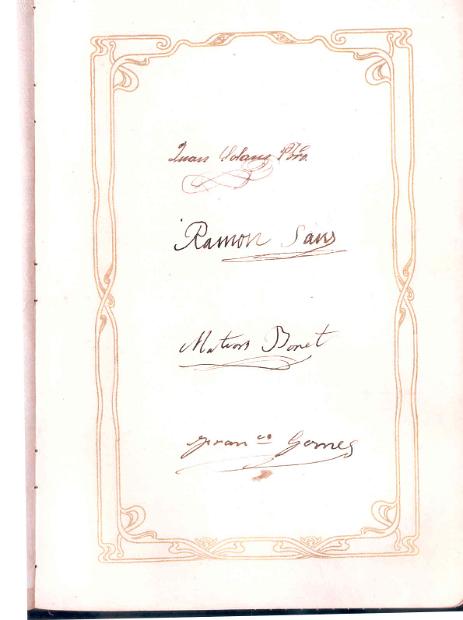 Juan Solans Pbro.
Ramon Sans
Matias Bonet
Fran.co Gomes